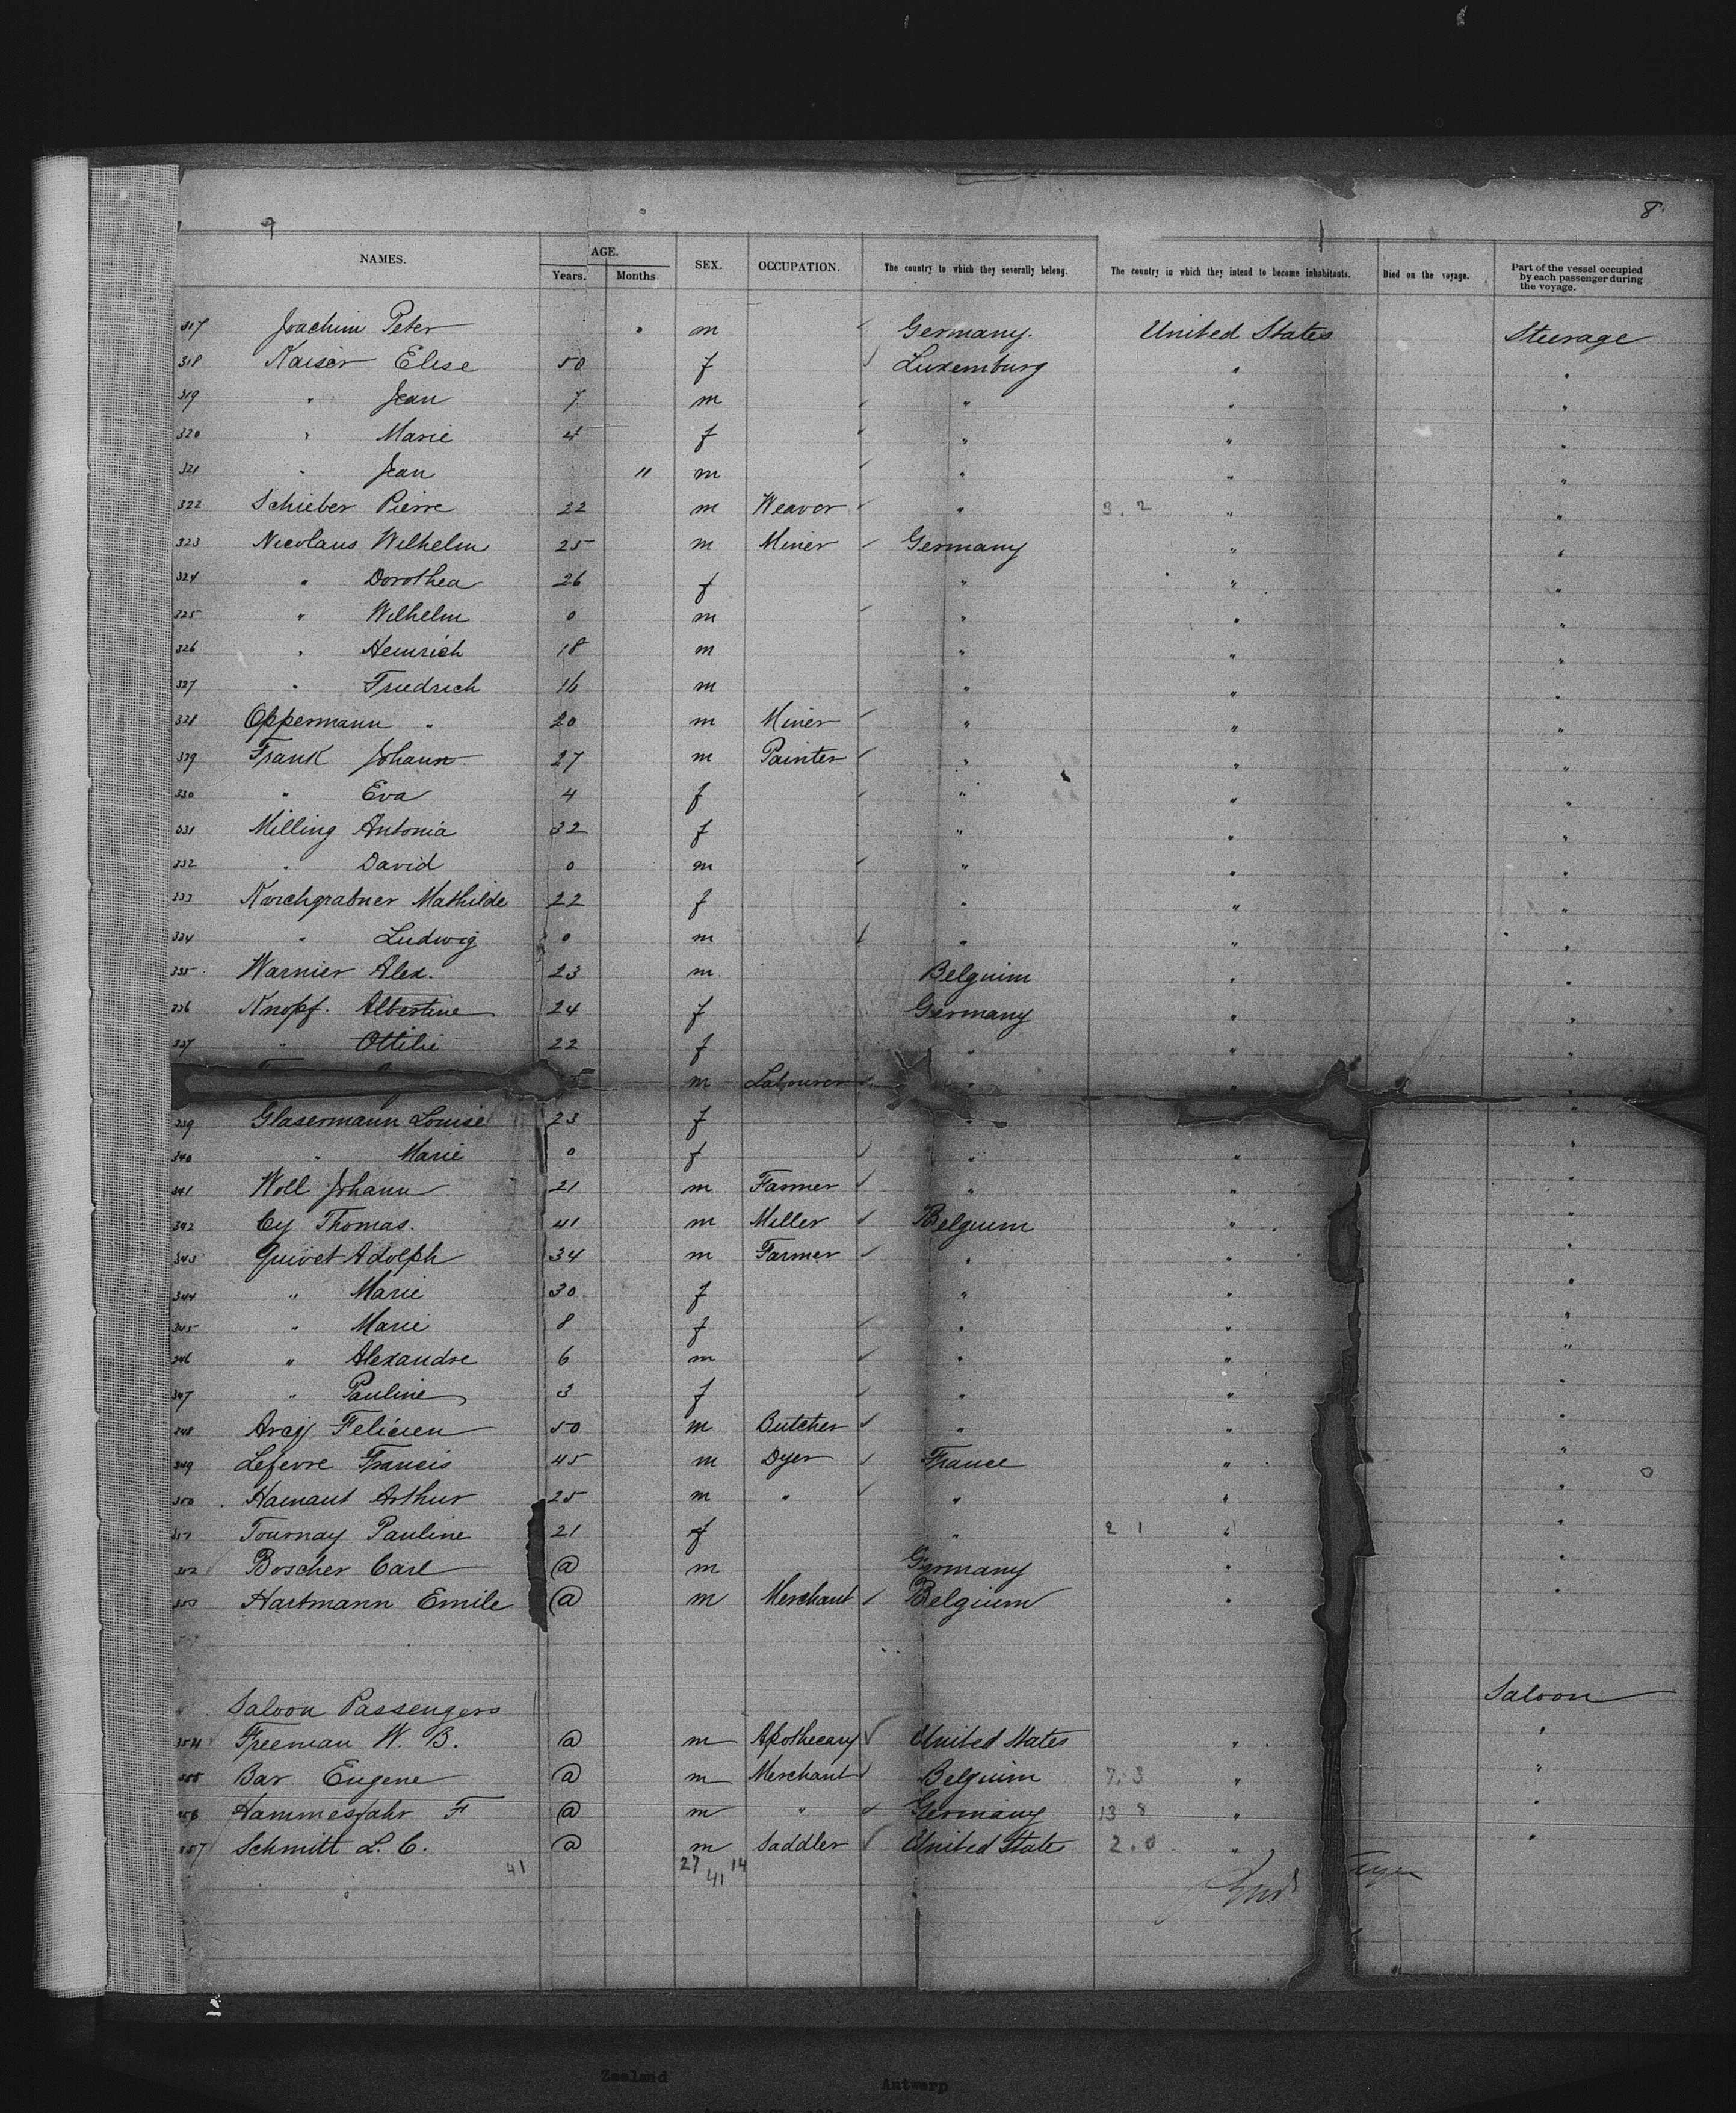 9 8
NAMES. AGE. Years. Months. SEX. OCCUPATION. The country to which they severally belong. The country in which they intend to become inhabitants. Died on the voyage. Part of the vessel occupied by each passenger during the voyage.
317 Joachim Peter m Germany. United States Steerage
318 Kaiser Elise 50 f Luxemburg " "
319 " Jean 7 m " " "
320 " Marie 4 f " " "
321 " Jean 11 m " " "
322 Schieber Pierre 22 m Weaver " 3.2 " "
323 Nicolaus Wilhelm 25 m Miner Germany " "
324 " Dorothea 26 f " " "
325 " Wilhelm 0 m " " "
326 " Heinrich 18 m " " "
327 " Friedrich 16 m " " "
328 Oppermann " 20 m Miner " " "
329 Frank Johann 27 m Painter " " "
330 " Eva 4 f " " "
331 Milling Antonia 32 f " " "
332 " David 0 m " " "
333 Kirchgrabner Mathilde 22 f " " "
334 " Ludwig 0 m " " "
335 Warnier Alex. 23 m Belguim " "
336 Knopf. Albertine 24 f Germany " "
337 " Ottilie 22 f " " "
m Labourer " " "
339 Glasermann Louise 23 f " "
340 " Marie 0 f " " "
341 Woll Johann 21 m Farmer " " "
342 Cy Thomas. 41 m Miller Belguim " "
343 Guivet Adolph 34 m Farmer " " "
344 " Marie 30 f " " "
345 " Marie 8 f " " "
346 " Alexandre 6 m " " "
347 " Pauline 3 f " " "
348 Felicien 50 m Butcher " " "
349 Lefevre Francis 45 m Dyer France " "
350 Hainaut Arthur 25 m " " " "
351 Tournay Pauline 21 f " 2 1 " "
352 Boscher Carl @ m Germany " "
353 Hartmann Emile @ m Merchant Belgium " "
Saloon Passengers Saloon
354 Freeman W. B. @ m Apothecary United States " "
355 Bar Eugene @ m Merchant Belgium 7.3 " "
356 Hammesfahr F @ m " Germany 13 8 " "
357 Schmitt L. C. @ m Saddler United State 2.0 " "
41 27 14
41
Zeeland Antwerp